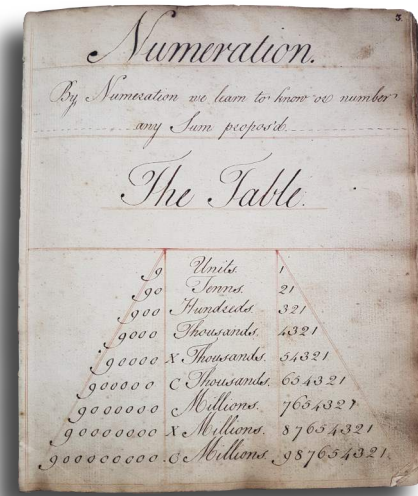 3
Numeration.
By Numeration we learn to know or number
any Sum propos'd.
The Table.
9 Units. 1
90 Tenns. 21
900 Hundreds. 321
9000 Thousands. 4321
90000 X Thousands. 54321
900000 C Thousands. 654321
9000000 Millions. 7654321
90000000 X Millions. 87654321
900000000 C Millions. 987654321